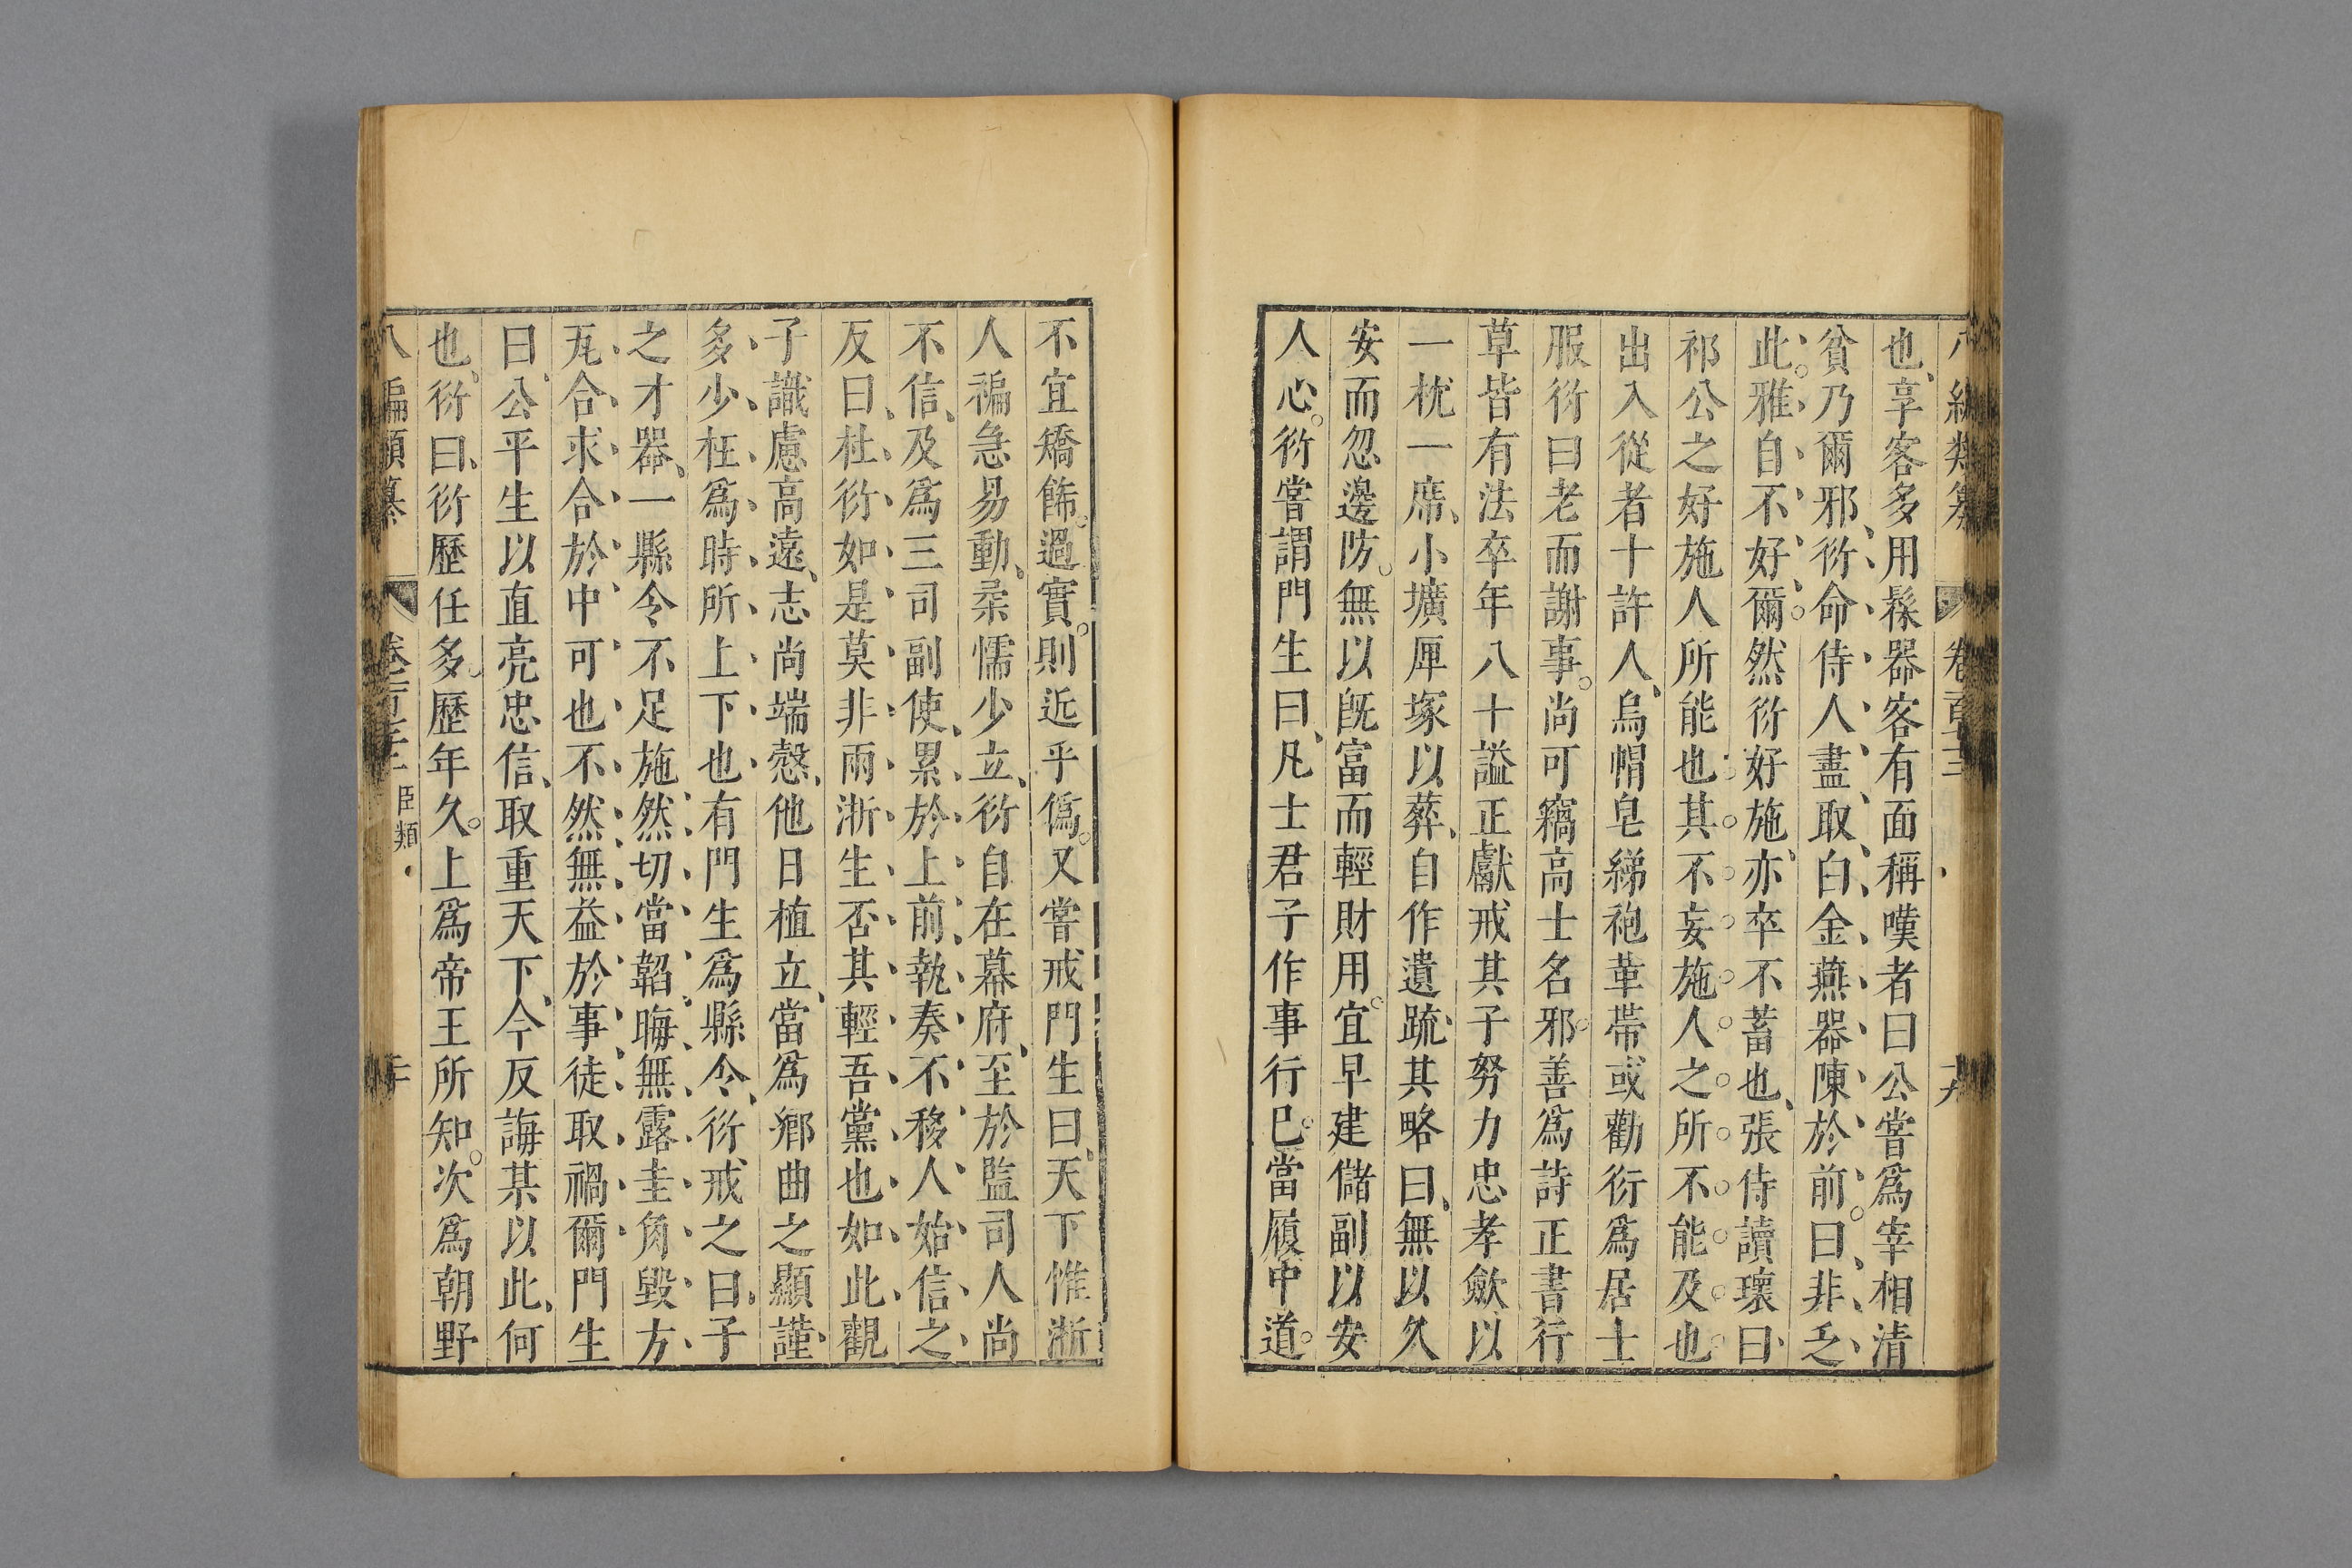 也享客多用髹器客有面稱嘆者曰公嘗爲宰相清
貧乃爾邪衍命侍人盡取白金燕器陳於前曰非乏
此雅自不好爾然衍好施亦卒不蓄也張侍讀瓌曰
祁公之好施人所能也其不妄施人之所不能及也
出入從者十許人烏帽皂綈袍革帶或勸衍爲居士
服衍曰老而謝事尚可竊高士名邪善爲詩正書行
草皆有法卒年八十謚正獻戒其子努力忠孝斂以
一枕一席小壙庳塚以葬自作遺疏其略曰無以久
安而忽邊防無以旣富而輕財用宜早建儲副以安
人心衍嘗謂門生曰凡士君子作事行已當履中道
不宜矯餙過實則近乎僞又嘗戒門生曰天下惟浙
人褊急易動柔懦少立衍自在幕府至於監司人尚
不信及爲三司副使累於上前執奏不移人始信之
反曰杜衍如是莫非兩浙生否其輕吾黨也如此觀
子識慮高遠志尚端慤他日植立當爲鄉曲之顯謹
多少枉爲時所上下也有門生爲縣令衍戒之曰子
之才器一縣令不足施然切當韜晦無露圭角毀方
瓦合求合於中可也不然無益於事徒取禍爾門生
曰公平生以直亮忠信取重天下今反誨某以此何
也衍曰衍歷任多歷年久上爲帝王所知次爲朝野
八編類纂 臣類